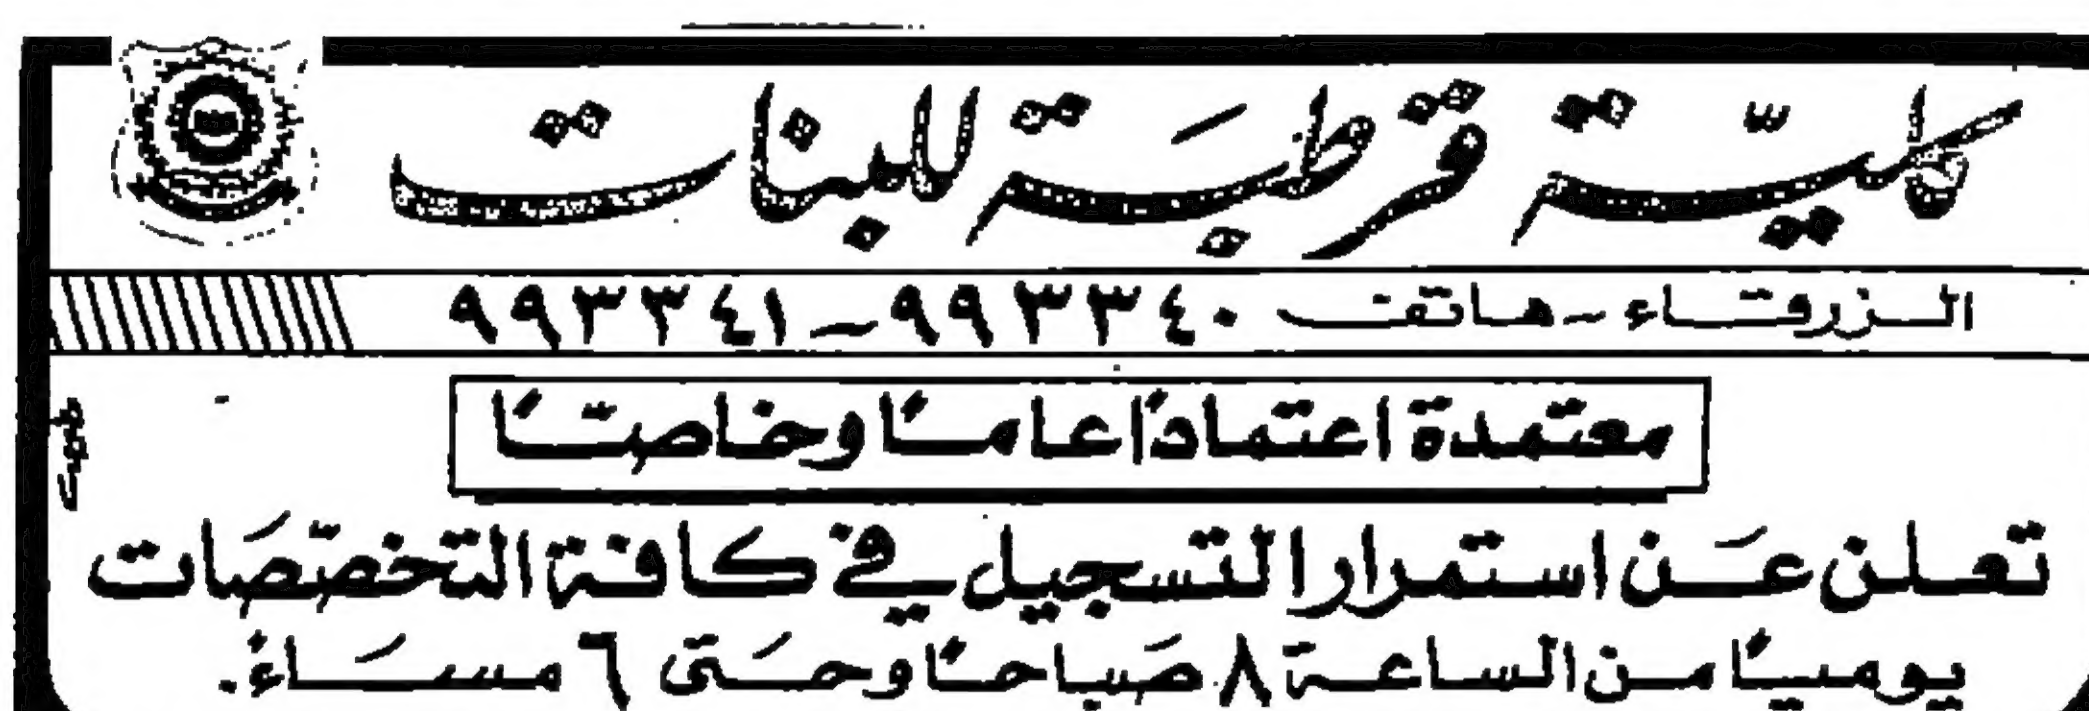 كليّة قرطبَة للبنات
الزرقاء - هاتف ٩٩٣٣٤٠ - ٩٩٣٣٤١
معتمدة اعتمادًا عامًا وخاصًا
تعلن عَن استمرار التسجيل في كافة التخصّصَات
يوميًا من الساعة ٨ صَباحًا وحَتى ٦ مسَاءً.